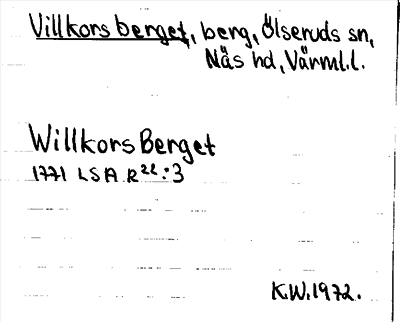 Villkorsberget, berg, Ölseruds sn,
Näs hd, Värml.l.
WillkorsBerget
1771 LSA R22:3
K.W.1972.